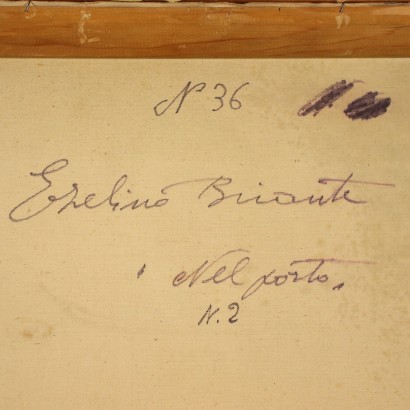 N° 36
Ezelino Briante
"Nel porto"
N. 2